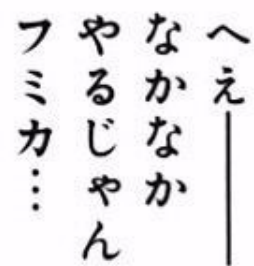 へえ──
なかなか
やるじゃん
フミカ…